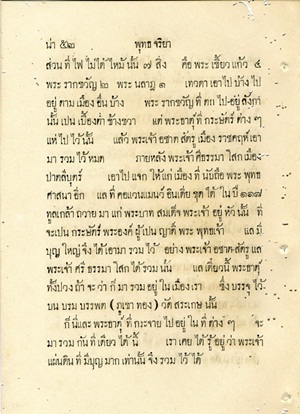 น่า ๕๒ พุทธ จริยา
ส่วน ที่ ไฟ ไม่ได้ ไหม้ นั้น ๗ สิ่ง คือ พระ เขี้ยว แก้ว ๔
พระ รากขวัญ ๒ พระ นลาฏ ๑ เทวดา เอาไป บ้าง ไป
อยู่ ตาม เมือง อื่น บ้าง พระ รากขวัญ ที่ ตก ไป อยู่ ลังกา
นั้น เปน เบื้องต่ำ ข้างขวา แต่ พระธาตุ ที่ กระษัตร ต่าง ๆ
แห่ ไป ไว้ นั้น แล้ว พระเจ้า อชาต ศัตรู เมือง ราชคฤห์ เอา
มา รวม ไว้ หมด ภายหลัง พระเจ้า ศีธรรมา โสก เมือง
ปาตลีบุตร์ เอาไป แจก ให้ แก่ เมือง ที่ นับถือ พระ พุทธ
ศาสนา อีก แล ที่ คอเวนแมนต์ อินเดีย ขุด ได้ ใน ปี ๑๑๗
ทูลเกล้า ถวาย มา แก่ พระบาท สมเด็จ พระเจ้า อยู่ หัว นั้น ที่
จะเปน กระษัตร์ พระองค์ ผู้ เปน ญาติ์ พระ พุทธเจ้า แล มี
บุญ ใหญ่ จึง ได้ เอา มา รวม ไว้ อย่าง พระเจ้า อชาต ศัตรู แล
พระเจ้า ศรี ธรรมา โสก ได้ รวม นั้น แล เดี๋ยวนี้ พระธาตุ์
ทั้งปวง ถ้า จะ ว่า ก็ มา รวม อยู่ ใน เมือง เรา ซึ่ง บรรจุ ไว้
บน บรม บรรพต ( ภูเขา ทอง ) วัด สระเกษ นั้น
ก็ นี่ แล พระธาตุ์ ที่ กระจาย ไป อยู่ ใน ที่ ต่าง ๆ จะ
มา รวม กัน ที่ เดียว ได้ นั้น เรา เคย ได้ รู้ อยู่ ว่า พระเจ้า
แผ่นดิน ที่ มี บุญ มาก เท่านั้น จึง รวม ไว้ ได้